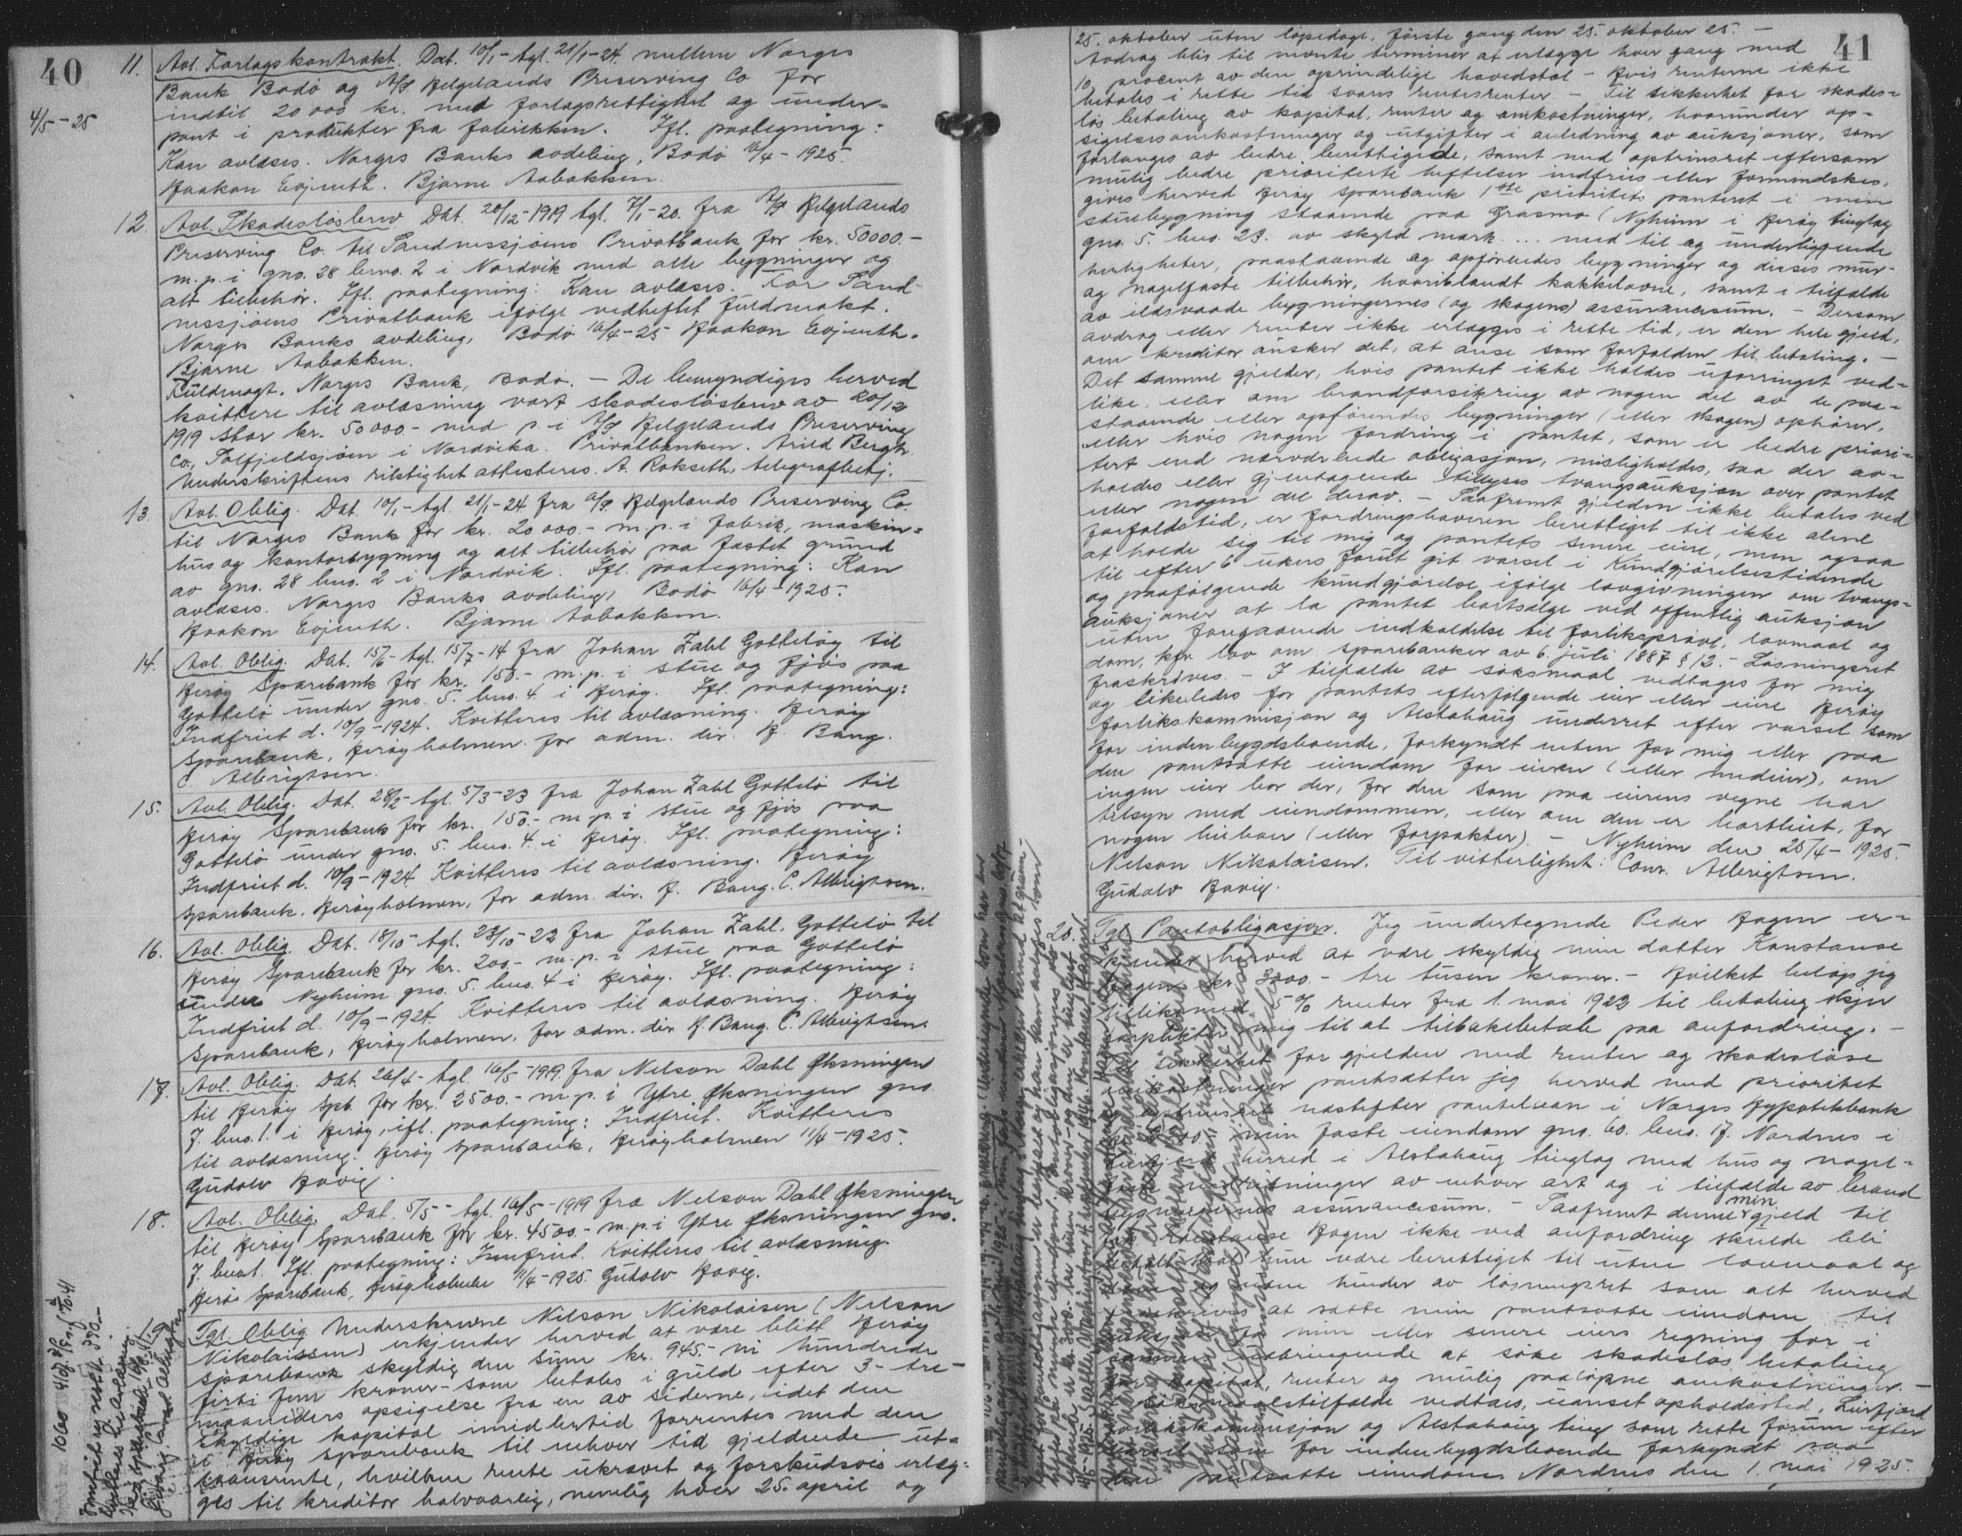 40
4/5-25
11. Avl. Forlagskontrakt. Dat. 10/1 - tgl. 21/1-24. mellem Norges
Bank Bodø og A/S Helgelands Preserving Co for
indtil 20 000 kr. med forlagsrettighet og under-
pant i produkter fra fabrikken. Ifl. paategning:
Kan avlæses. Norges Banks avdeling, Bodø 16/4-1925.
Haakon Evjenth. Bjarne Aabakken.
12. Avl. Skadesløsbrev Dat. 20/12-1919 tgl. 7/1-20. fra A/S Helgelands
Preserving Co. til Sandnessjøens Privatbank for kr. 50000.-
m.p. i gno. 28 brno. 2 i Nordvik med alle bygninger og
alt tilbehør. Ifl. paategning: Kan avlæses. For Sand-
nessjøens Privatbank ifølge vedheftet fuldmakt.
Norges Banks avdeling, Bodø 16/4-25 Haakon Evjenth.
Bjarne Aabakken.
Fuldmagt. Norges Bank, Bodø. - De bemyndiges herved
kvittere til avlæsning vort skadesløsbrev av 20/12
1919 stor kr. 50 000.- med p. i A/S Helgelands Preserving
Co., Tolfjeldsjøen i Nordvika. Privatbanken. Arild Bergh.
Underskriftens riktighet attesteres. A. Rokseth, telegrafbetj.
13. Avl. Oblig. Dat. 10/1 - tgl. 21/1-24 fra A/S Helgelands Preserving Co.
til Norges Bank for kr. 20 000.- m.p. i fabrik, maskin-
hus og kontorbygning og alt tilbehør paa fæstet grund
av gno. 28 bno. 2 i Nordvik. Ifl. paategning: Kan
avlæses. Norges Banks avdeling, Bodø 16/4-1925.
Haakon Evjenth. Bjarne Aabakken.
14. Avl. Oblig. Dat. 15/6 - tgl. 15/7-14 fra Johan Zahl Gotteløy til
Herøy Sparebank for kr. 150.- m.p. i stue og fjøs paa
Gotteløy under gno. 5. bno. 4 i Herøy. Ifl. paategning:
Indfriet d. 10/9-1924. Kvitteres til avlæsning. Herøy
Sparebank, Herøyholmen. for adm. dir. H. Bang.
C. Albrigtsen.
15. Avl. Oblig. Dat. 28/2 - tgl. 5/3-23 fra Johan Zahl Gotteløy til
Herøy Sparebank for kr. 150.- m.p. i stue og fjøs paa
Gotteløy under gno. 5. bno. 4. i Herøy. Ifl. paategning:
Indfriet d. 10/9-1924 Kvitteres til avlæsning. Herøy
Sparebank, Herøyholmen, for adm. dir. H. Bang. C. Albrigtsen.
16. Avl. Oblig. Dat. 18/10 - tgl. 23/10-22 fra Johan Zahl. Gotteløy til
Herøy Sparebank for kr. 200.- m.p. i stue paa Gotteløy
under Nyheim gno. 5. bno. 4 i Herøy. Ifl. paategning:
Indfriet d. 10/9-1924 Kvitteres til avlæsning. Herøy
Sparebank, Herøyholmen, for adm. dir. H. Bang. C. Albrigtsen
17. Avl. Oblig. Dat. 26/4 - tgl. 16/5-1919 fra Nelson Dahl Øksningen
til Herøy Spb. for kr. 2500.- m.p. i Ytre Øksningen gno.
7. bno. 1. i Herøy, ifl. paategning: Indfriet. Kvitteres
til avlæsning. Herøy Sparebank, Herøyholmen 11/4-1925.
Gudolv Hovig.
18. Avl. Oblig. Dat. 5/5 - tgl. 16/5-1919 fra Nelson Dahl Øksningen
til Herøy Sparebank for kr. 4500.- m.p. i Ytre Øksningen gno.
7. bno 1. Ifl. paategning: Indfriet. Kvitteres til avlæsning.
Herøy Sparebank, Herøyholmen 11/4-1925 Gudolv Hovig.
19. Tgl. Oblig. Underskrevne Nelson Nikolaisen (Nelson
Nikolaissen) erkjender herved at være blitt Herøy
sparebank skyldig den sum kr. 945.- ni hundrede
firti fem kroner - som betales i guld efter 3 - tre -
maaneders opsigelse fra en av siderne, idet den
skyldige kapital imidlertid forrentes med den
i Herøy sparebank til enhver tid gjeldende ut-
laansrente, hvilken rente ukrævet og forskudsvis erlæg-
ges til kreditor halvaarlig, nemlig hver 25. april og
41
25. oktober uten løpedage, første gang den 25. oktober 25. -
Avdrag blir til nævnte terminer at erlægge hver gang med
10 procent av den oprindelige hovedstol - Hvis renterne ikke
betales i rette tid svares rentesrenter - Til sikkerhet for skades-
løs betaling av kapital, renter og omkostninger, herunder op-
sigelsesomkostninger og utgifter i anledning av auksjoner, som
forlanges av bedre berettigede, samt med optrinsret eftersom
mulig bedre prioriterte heftelser indfries eller formindskes,
gives herved Herøy sparebank 1ste prioritets panteret i min
stuebygning staaende paa Grasmo (Nyheim i Herøy tinglag
gno. 5. bno. 23. av skyld mark ... med til og underliggende
herligheter, paastaaende og opførendes bygninger og disses mur-
og nagelfaste tilbehør, hvoriblandt kakkelovne, samt i tilfælde
av ildsvaade bygningernes (og skogens) assurancesum. - Dersom
avdrag eller renter ikke erlægges i rette tid, er den hele gjeld,
om kreditor ønsker det, at anse som forfalden til betaling. -
Det samme gjelder, hvis pantet ikke holdes uforringet ved-
like, eller om brandforsikring av nogen del av de paa-
staaende eller opførendes bygninger (eller skogen) ophører,
eller hvis nogen fordring i pantet, som er bedre priori-
tert end nærværende obligasjon, misligholdes, saa der av-
holdes eller gjentagende tillyses tvangsauksjon over pantet
eller nogen del derav. - Saafremt gjelden ikke betales ved
forfaldstid, er fordringshaveren berettiget til ikke alene
at holde sig til mig og pantets senere eiere, men ogsaa
til efter 6 ukers forut git varsel i Kundgjørelsestidende
og paafølgende kundgjørelse ifølge lovgivningen om tvangs-
auksjoner at la pantet bortsælge ved offentlig auksjon
uten foregaaende indkaldelse til forliksprøve, lovmaal og
dom, kfr. lov om sparebanker av 6. juli 1887 § 12. - Løsningsret
fraskrives. - I tilfælde av søksmaal vedtages for mig
og likeledes for pantets efterfølgende eier eller eiere Herøy
forlikskommisjon og Alstahaug underret efter varsel som
for indenbygdsboende, forkyndt enten for mig eller paa
den pantsatte eiendom for eieren (eller medeier), om
ingen eier bor der, for den som paa eierens vegne har
tilsyn med eiendommen, eller om den er bortleiet, for
nogen leieboer (eller forpakter). - Nyheim den 25/4-1925.
Nelson Nikolaisen. Til vitterlighet: Conr. Albrigtsen.
Gudolv Hovig.
20. Tgl. Pantobligasjon. Jeg undertegnede Peder Hagen er-
kjender herved at være skyldig min datter Konstanse
Hagen kr. 3000 - tre tusen kroner. - Hvilket beløp jeg
tillikemed 5 % renter fra 1. mai 1923 til betaling skjer
forplikter mig til at tilbakebetale paa anfordring. -
Til sikkerhet for gjelden med renter og skadesløse
omkostninger pantsætter jeg herved med prioritet
og optrinsret næstefter pantelaan i Norges Hypotekbank
min faste eiendom gno. 60. bno. 17. Nordnes i
herred i Alstahaug tinglag med hus og nagel-
faste indretninger av enhver art og i tilfælde av brand
bygningernes assurancesum. - Saafremt denne min gjeld til
Konstanse Hagen ikke ved anfordring skulde bli
betalt skal hun være berettiget til uten lovmaal og
dom og uten hinder av løsningsret som alt herved
fraskrives at sætte min pantsatte eiendom til
auksjon for min eller senere eiers regning for i
sammes utbringende at søke skadesløs betaling
for kapital, renter og mulig paaløpne omkostninger. -
I søksmaalstilfælde vedtaes, uanset opholdssted, Leirfjord
forlikskommisjon og Alstahaug ting som rette forum efter
varsel som for indenbygdsboende forkyndt paa
den pantsatte eiendom. Nordnes den 1. mai 1925.